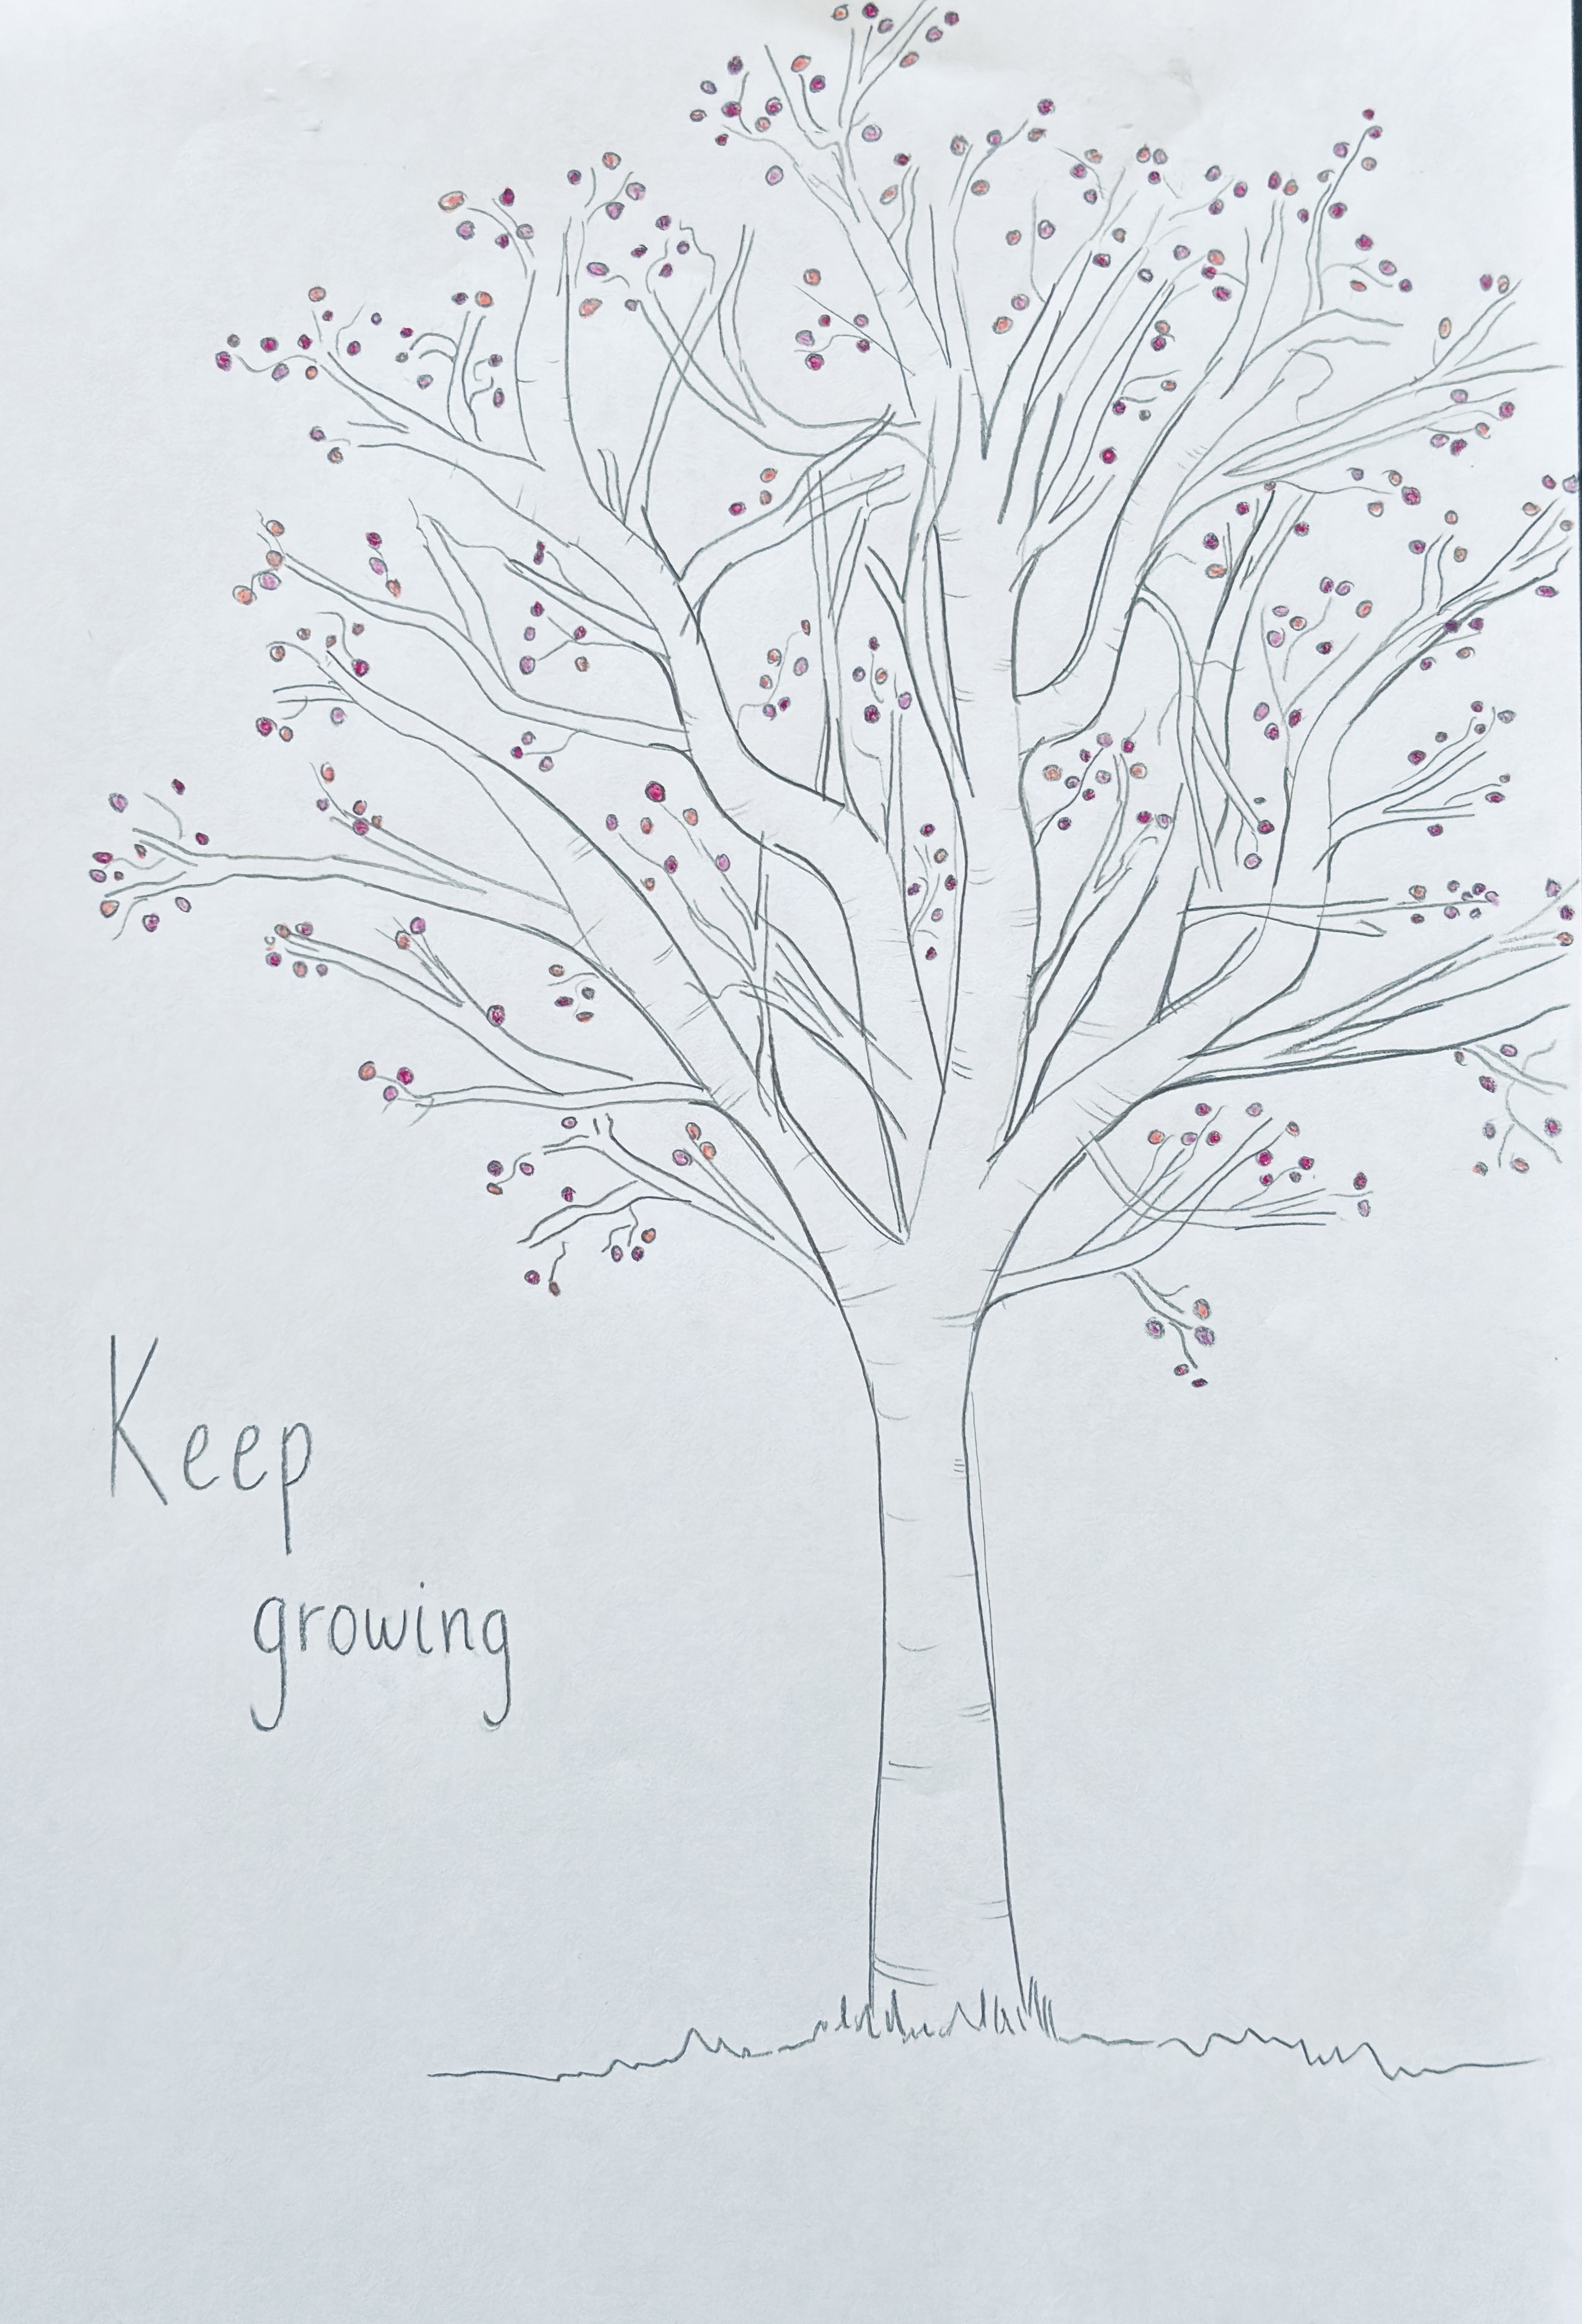 Keep
growing